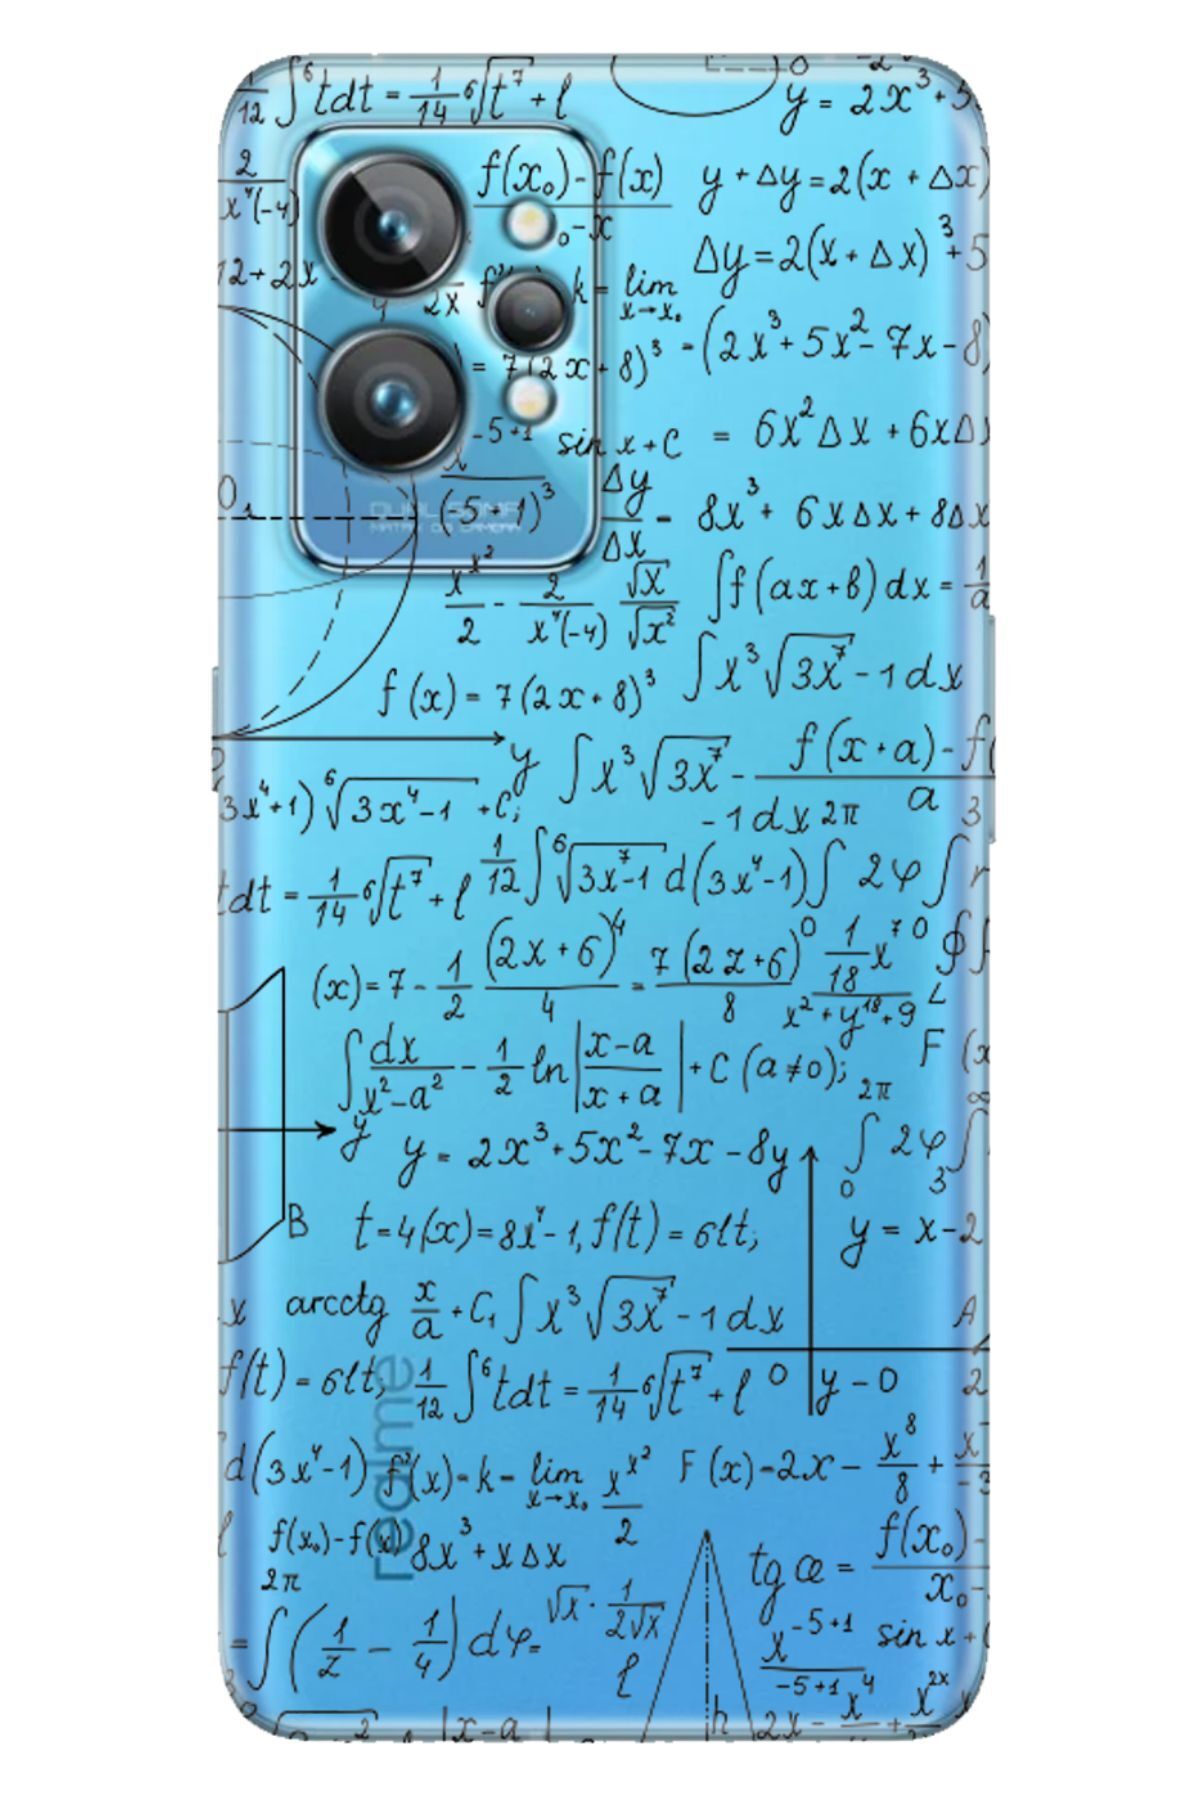 1/12 ∫⁶tdt = 1/14 ⁶√t⁷ + l
0
y = 2x³ + 5
2/x⁴(-4)
f(x₀) - f(x)
y + Δy = 2(x + Δx)
₀-x
Δy = 2(x + Δx)³ + 5
12 + 2x
2x
k = lim x→x₀
- (2x³ + 5x² - 7x - 8)
= 7(2x + 8)³
-5+1
sin x + C
= 6x²Δx + 6xΔx
(-5+1)³
Δy/Δx -
8x³ + 6xΔx + 8Δx
DUAL
MATRIX CAMERA
x^x²/2 - 2/x⁴(-4) √x/√x²
∫f(ax+b)dx = 1/a
f(x) = 7(2x + 8)³
∫x³√3x⁷ - 1 dx
y
∫x³√3x⁷ - f(x+a) - f(/a
3x⁴+1) ⁶√3x⁴-1 + C;
- 1 dx 2π 3
tdt = 1/14 ⁶√t⁷ + l
1/12 ∫⁶√3x⁷-1 d(3x⁴-1) ∫ 2φ ∫ r
(x) = 7 - 1/2 (2x+6)⁴/4 = 7(2z+6)⁰/8
1/18 x⁷⁰ ∮∫
x²+y¹⁸+9 ∠
∫dx/x²-a² - 1/2 ln|x-a/x+a| + C (a≠0);
F (x
2π
∞
y
y = 2x³ + 5x² - 7x - 8y
∫ 2φ ∫
0 3
B
t = 4(x) = 8x⁴ - 1, f(t) = 6lt;
y = x - 2
x arcctg x/a + C₁ ∫x³√3x⁷ - 1 dx
A
f(t) = 6lt; 1/12 ∫⁶tdt = 1/14 ⁶√t⁷ + l
0
y - 0
2
realme
d(3x⁴-1) f'(x) - k - lim x→x₀ x^x²/2
F (x) - 2x - x⁸/8 + x/-3
l f(x₀) - f(x) 8x³ + xΔx
2π
tg æ = f(x₀) - /x₀ -
= ∫(1/z - 1/4) dφ = √x · 1/2√x
x^-5+1/-5+1 sin x + C
l
h
2
x-a
2x - x⁴ + x²ˣ x